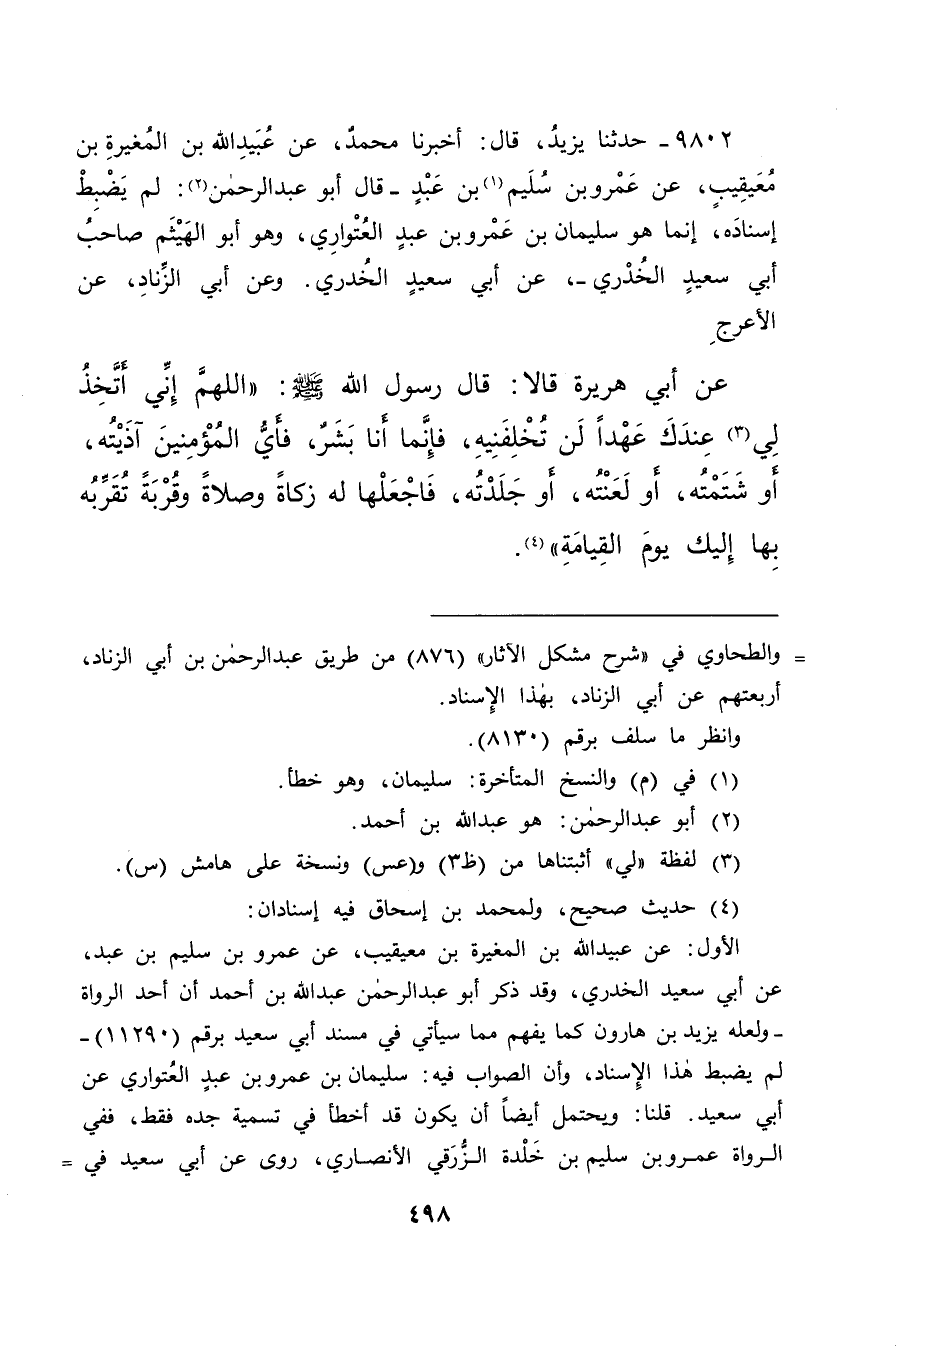 ٩٨٠٢ ـ حدثنا يزيدُ، قال: أخبرنا محمدٌ، عن عُبَيدِالله بن المُغيرةِ بن
مُعَيقِيبٍ، عن عَمْرو بن سُلَيم(١) بن عَبْدٍ ـ قال أبو عبدالرحمٰن(٢): لم يَضْبِطْ
إسنادَه، إنما هو سليمان بن عَمْرو بن عبدٍ العُتْوارِي، وهو أبو الهَيْثَم صاحبُ
أبي سعيدٍ الخُدْري ـ، عن أبي سعيدٍ الخُدري. وعن أبي الزِّنادِ، عن
الأعرجِ
عن أبي هريرة قالا: قال رسول الله ﷺ: «اللهمَّ إِنِّي أَتَّخِذُ
لِي(٣) عِندَكَ عَهْداً لَن تُخْلِفَنِيهِ، فإِنَّما أَنا بَشَرٌ، فأَيُّ المُؤْمِنينَ آذَيْتُه،
أَو شَتَمْتُه، أَو لَعَنْتُه، أَو جَلَدْتُه، فَاجْعَلْها له زكاةً وصلاةً وقُرْبَةً تُقَرِّبُه
بِها إِليك يومَ القِيامَةِ»(٤).
= والطحاوي في «شرح مشكل الآثار» (٨٧٦) من طريق عبدالرحمٰن بن أبي الزناد،
أربعتهم عن أبي الزناد، بهٰذا الإِسناد.
وانظر ما سلف برقم (٨١٣٠).
(١) في (م) والنسخ المتأخرة: سليمان، وهو خطأ.
(٢) أبو عبدالرحمٰن: هو عبدالله بن أحمد.
(٣) لفظة «لي» أثبتناها من (ظ٣) و(عس) ونسخة على هامش (س).
(٤) حديث صحيح، ولمحمد بن إسحاق فيه إسنادان:
الأول: عن عبيدالله بن المغيرة بن معيقيب، عن عمرو بن سليم بن عبد،
عن أبي سعيد الخدري، وقد ذكر أبو عبدالرحمٰن عبدالله بن أحمد أن أحد الرواة
ـ ولعله يزيد بن هارون كما يفهم مما سيأتي في مسند أبي سعيد برقم (١١٢٩٠) ـ
لم يضبط هٰذا الإِسناد، وأن الصواب فيه: سليمان بن عمرو بن عبدٍ العُتواري عن
أبي سعيد. قلنا: ويحتمل أيضاً أن يكون قد أخطأ في تسمية جده فقط، ففي
الرواة عمرو بن سليم بن خَلْدة الزُّرَقي الأنصاري، روى عن أبي سعيد في =
٤٩٨